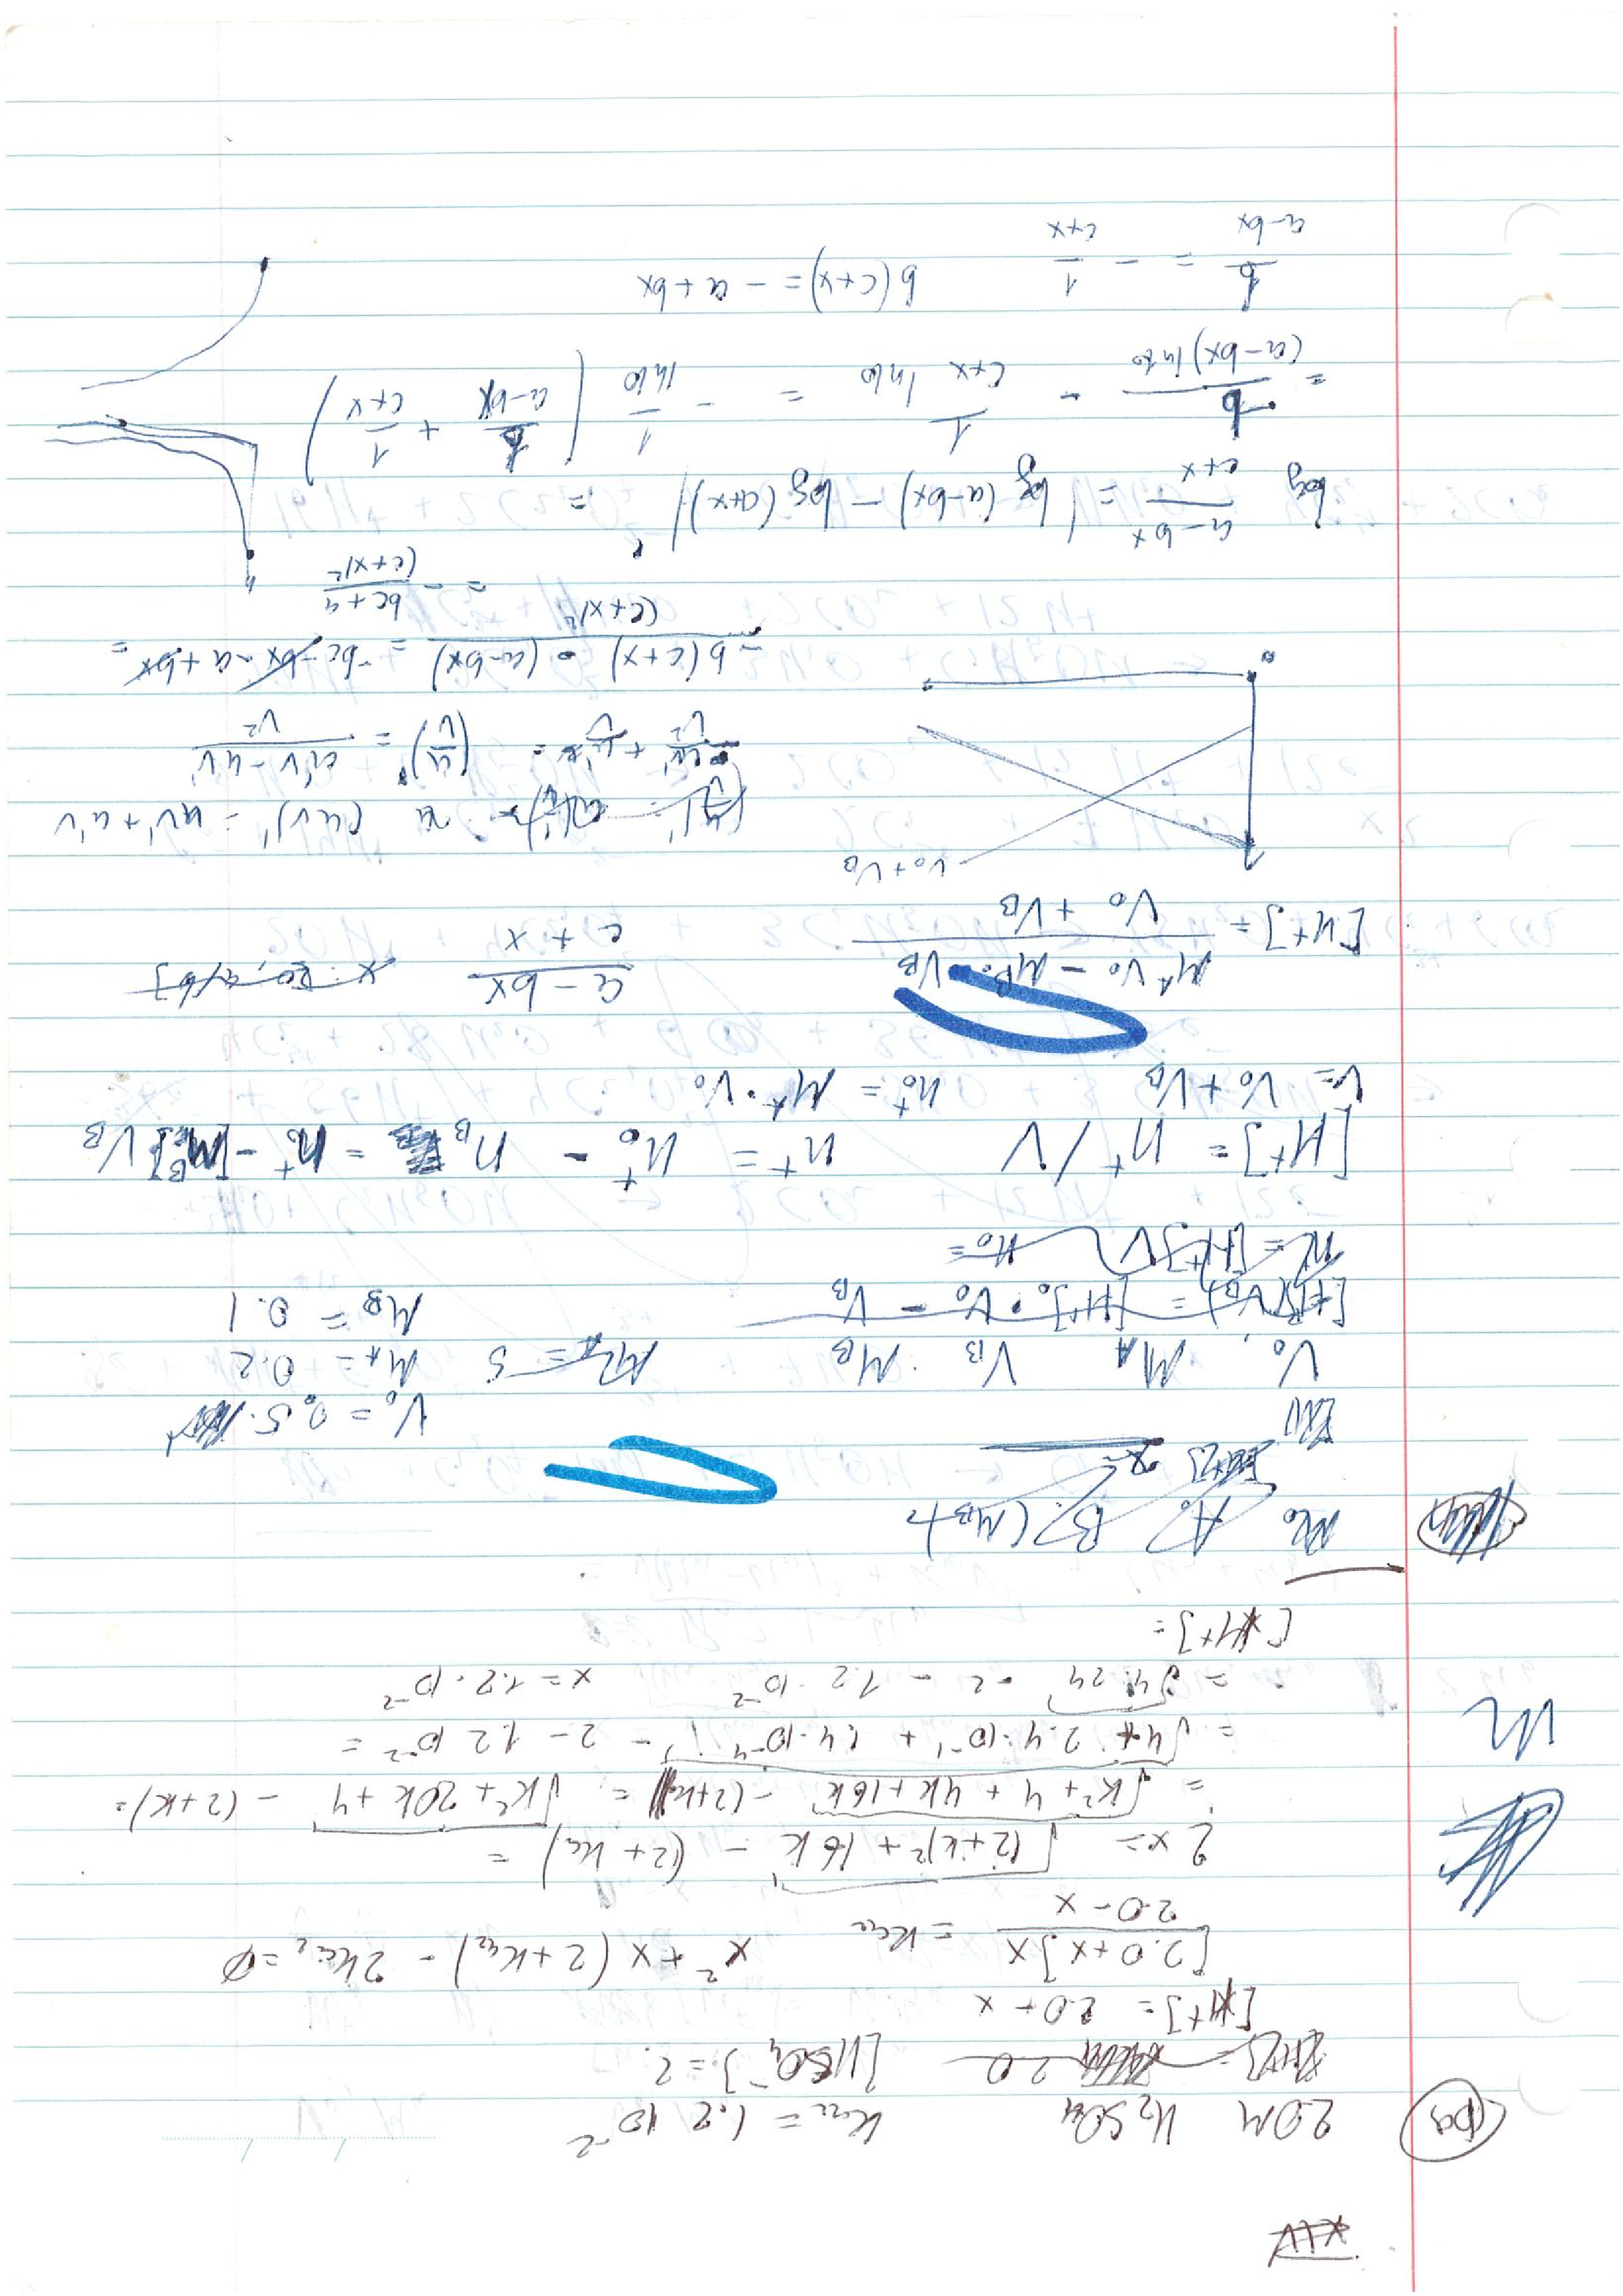 2.0 M H₂SO₄ Ka₂ = 1.2 10⁻²
2.0 [HSO₄⁻] = 2.
[H+] = 2.0 + x
[2.0+x]x / 2.0-x = Ka₂ x² + x(2+Ka₂) - 2Ka₂ = 0
2x = √(2+k)² + 16k - (2+Ka) =
= √k²+4+4k+16k - (2+k) = √k²+20k+4 - (2+k) =
= √4+ 2.4·10⁻¹ + 1.4·10⁻⁴ - 2 - 1.2 10⁻² =
= √4.24 - 2 - 1.2·10⁻² x = 1.2·10⁻²
[H+] =
A B (M_B)
V₀ = 0.5
V₀, M_A V_B M_B M_A = 0.2
[H+](V_B) = [H+]₀·V₀ - V_B M_B = 0.1
n = [H+]V n₀ =
[H+] = n⁺/V n⁺ = n₀⁺ - n_B = n₀⁺ - M_B V_B
V = V₀ + V_B n₀⁺ = M_A·V₀
[H+] = M_A V₀ - M_B·V_B / V₀ + V_B a - bx / c + x
V₀+V_B
(uv)' = uv' + u'v
(u/v)' = u'v - uv' / v²
-b(c+x) - (a-bx) / (c+x)² = -bc - bx - a + bx =
= - bc+a / (c+x)²
log a-bx / c+x = [log(a-bx) - log(c+x)]' =
= - b / (a-bx) ln10 - 1 / c+x ln10 = - 1/ln10 ( b / a-bx + 1 / c+x )
b / a-bx = - 1 / c+x b(c+x) = -a + bx